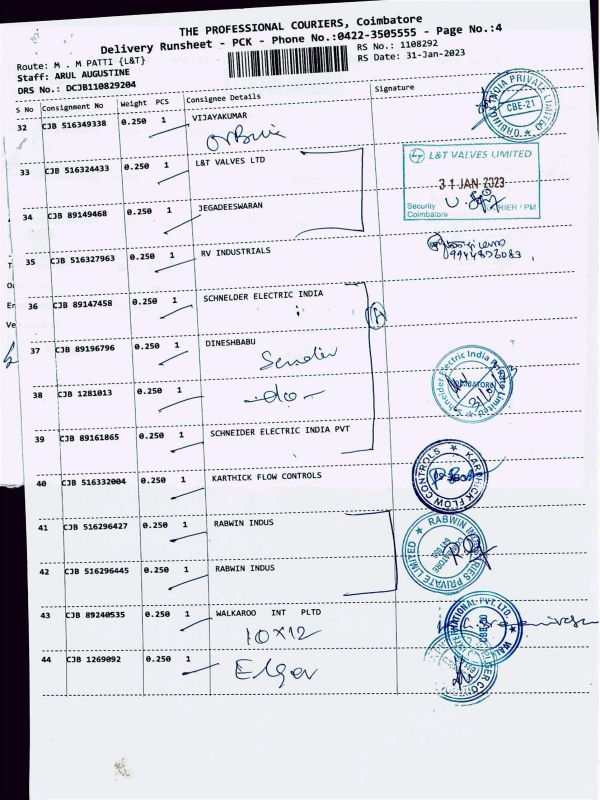 THE PROFESSIONAL COURIERS, Coimbatore
Delivery Runsheet - PCK - Phone No.:0422-3505555 - Page No.:4
Route: M . M PATTI {L&T}
RS No.: 1108292
Staff: ARUL AUGUSTINE
RS Date: 31-Jan-2023
DRS No.: DCJB110829204
S No Consignment No Weight PCS Consignee Details Signature
32 CJB 516349338 0.250 1 VIJAYAKUMAR
ONBINGS INDIA PRIVATE LIMITED
CBE-21
33 CJB 516324433 0.250 1 L&T VALVES LTD
L&T VALVES LIMITED
31 JAN 2023
Security
Coimbatore
34 CJB 89149468 0.250 1 JEGADEESWARAN
35 CJB 516327963 0.250 1 RV INDUSTRIALS
36 CJB 89147458 0.250 1 SCHNELDER ELECTRIC INDIA
A
37 CJB 89196796 0.250 1 DINESHBABU
Sender
Schneider Electric India Private Limited
COIMBATORE
38 CJB 1281013 0.250 1
-do-
39 CJB 89161865 0.250 1 SCHNEIDER ELECTRIC INDIA PVT
40 CJB 516332004 0.250 1 KARTHICK FLOW CONTROLS
KARTHICK FLOW CONTROLS
41 CJB 516296427 0.250 1 RABWIN INDUS
RABWIN INDUSTRIES PRIVATE LIMITED
42 CJB 516296445 0.250 1 RABWIN INDUS
43 CJB 89240535 0.250 1 WALKAROO INT PLTD
10x12
WALKAROO INTERNATIONAL PVT. LTD
44 CJB 1269092 0.250 1
Elgor